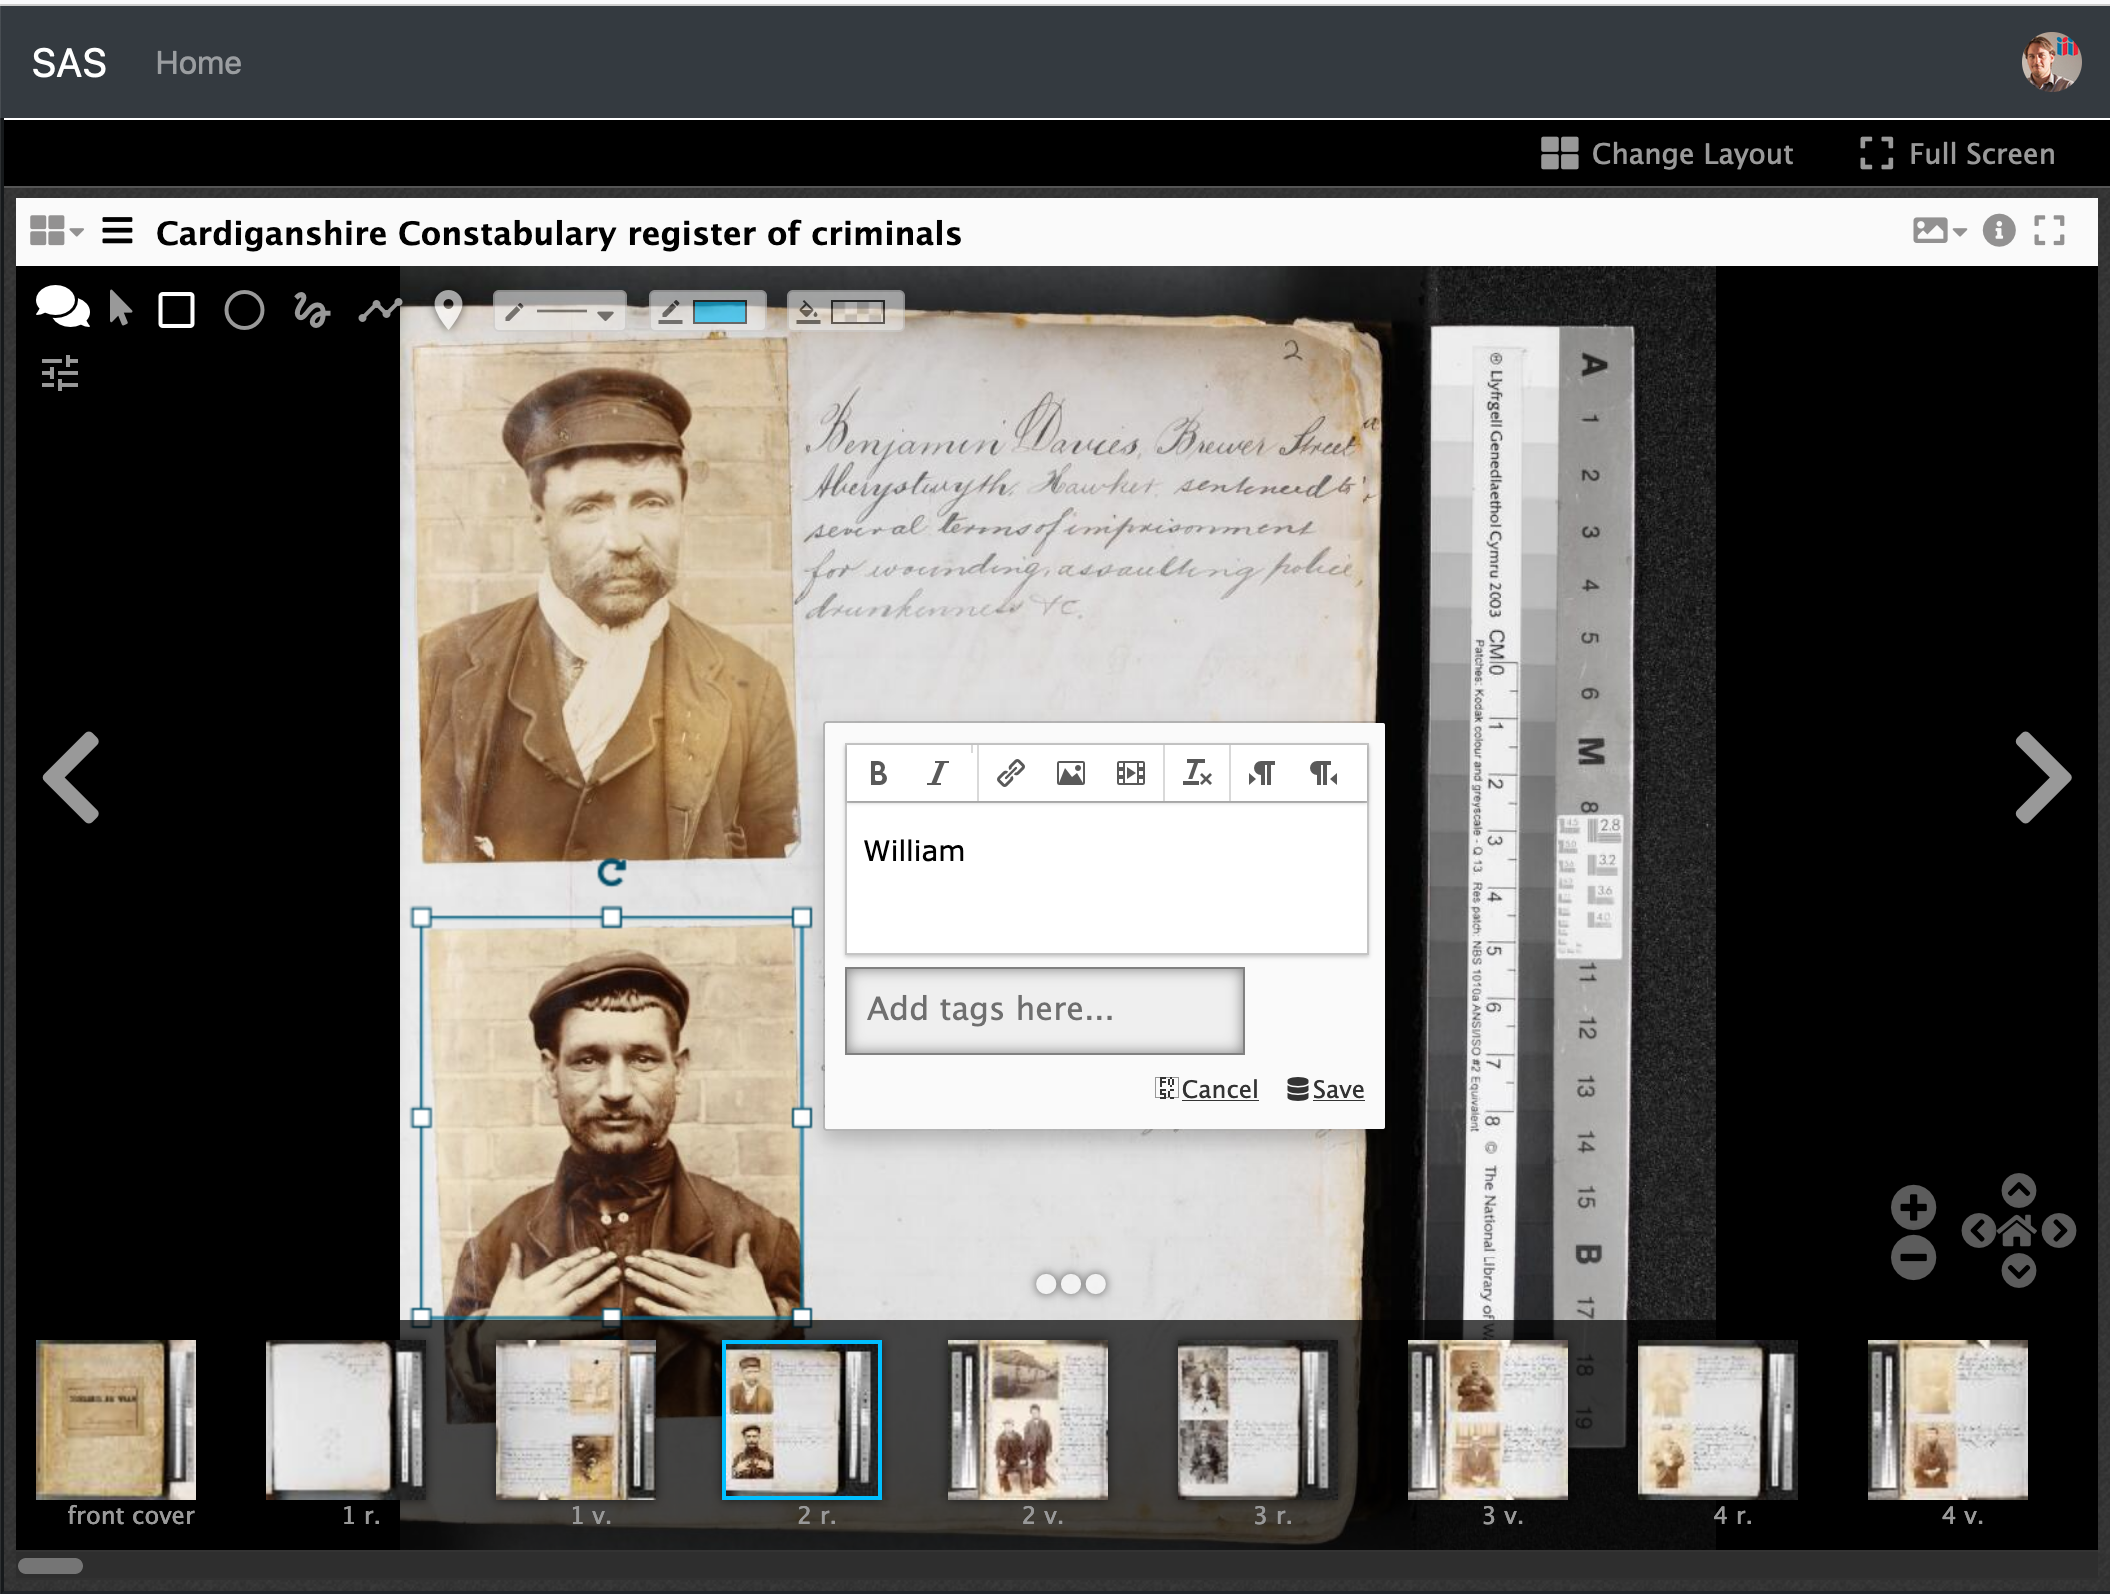 SAS Home
Change Layout Full Screen
Cardiganshire Constabulary register of criminals
2
Benjamin Davies, Brewer Street
Aberystwyth. Hawker. sentenced to
several terms of imprisonment
for wounding, assaulting police,
drunkenness &c.
B I
William
Add tags here...
Cancel Save
® Llyfrgell Genedlaethol Cymru 2003 CM 0 1 2 3 4 5 6 7 8 © The National Library of W
Patches: Kodak colour and greyscale - Q 13. Res patch: NBS 1010a ANSI/ISO #2 Equivalent
A 1 2 3 4 5 6 M 8 11 12 13 14 15 B 17 18 19
2.8
3.2
3.6
4.0
4.5
5.0
front cover 1 r. 1 v. 2 r. 2 v. 3 r. 3 v. 4 r. 4 v.